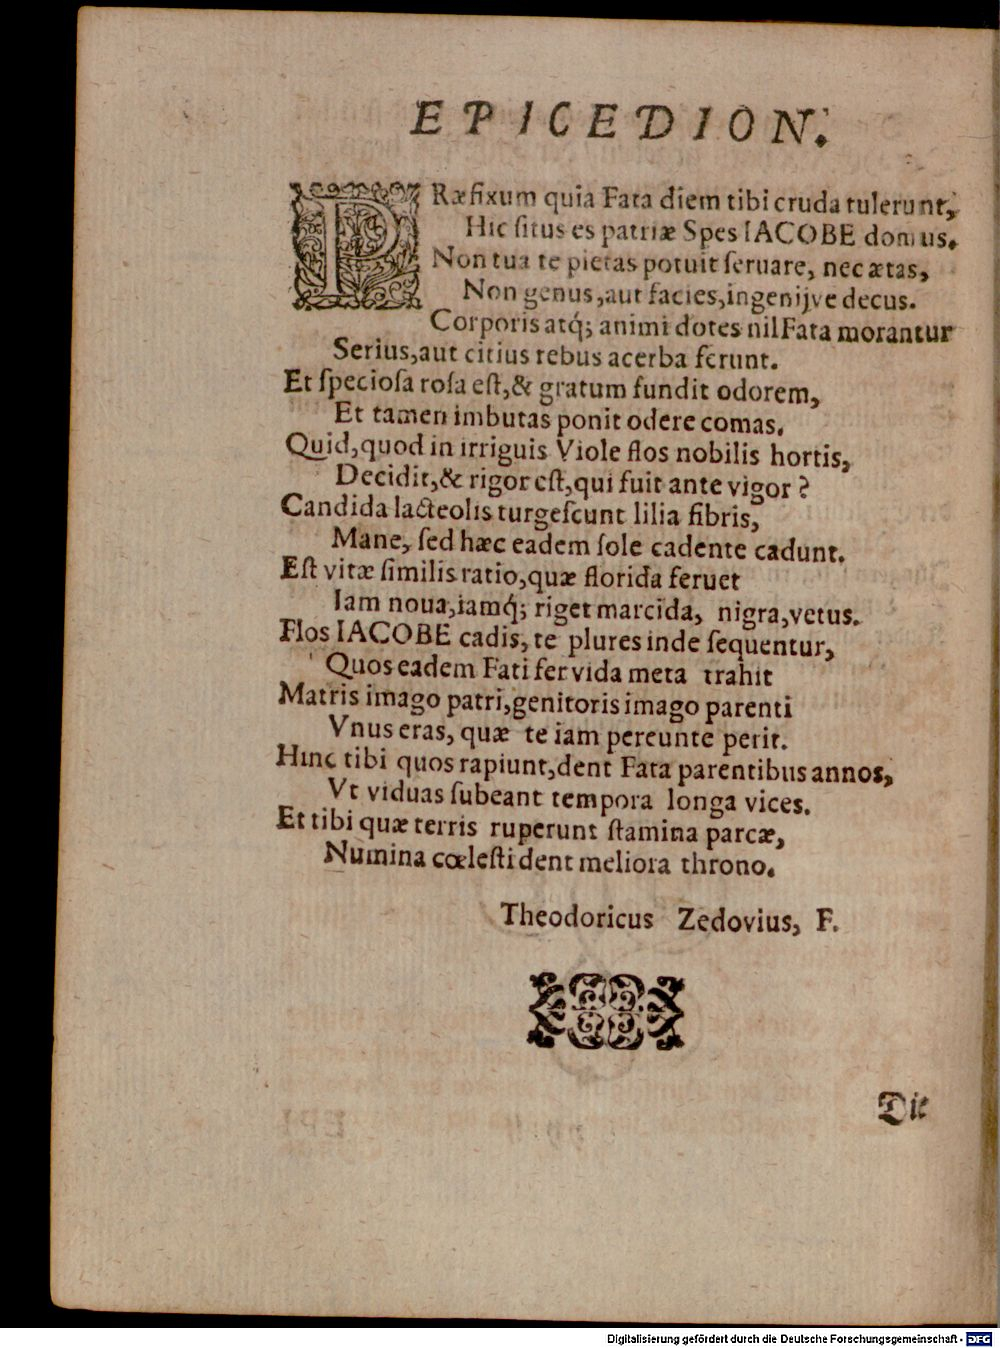 EPICEDION.
PRæfixum quia Fata diem tibi cruda tulerunt,
Hic ſitus es patriæ Spes IACOBE domus.
Non tua te pietas potuit ſeruare, nec ætas,
Non genus, aut facies, ingenijve decus.
Corporis atq́; animi dotes nil Fata morantur
Serius, aut citius rebus acerba ferunt.
Et ſpecioſa roſa eſt, & gratum fundit odorem,
Et tamen imbutas ponit odere comas.
Quid, quod in irriguis Viole flos nobilis hortis,
Decidit, & rigor eſt, qui fuit ante vigor?
Candida lacteolis turgeſcunt lilia fibris,
Mane, ſed hæc eadem ſole cadente cadunt.
Eſt vitæ ſimilis ratio, quæ florida feruet
Iam noua, iamq́; riget marcida, nigra, vetus.
Flos IACOBE cadis, te plures inde ſequentur,
Quos eadem Fati fervida meta trahit
Matris imago patri, genitoris imago parenti
Vnus eras, quæ te iam pereunte perit.
Hinc tibi quos rapiunt, dent Fata parentibus annos,
Vt viduas ſubeant tempora longa vices.
Et tibi quæ terris ruperunt ſtamina parcæ,
Numina cœleſti dent meliora throno.
Theodoricus Zedovius, F.
Die
Digitalisierung gefördert durch die Deutsche Forschungsgemeinschaft - DFG